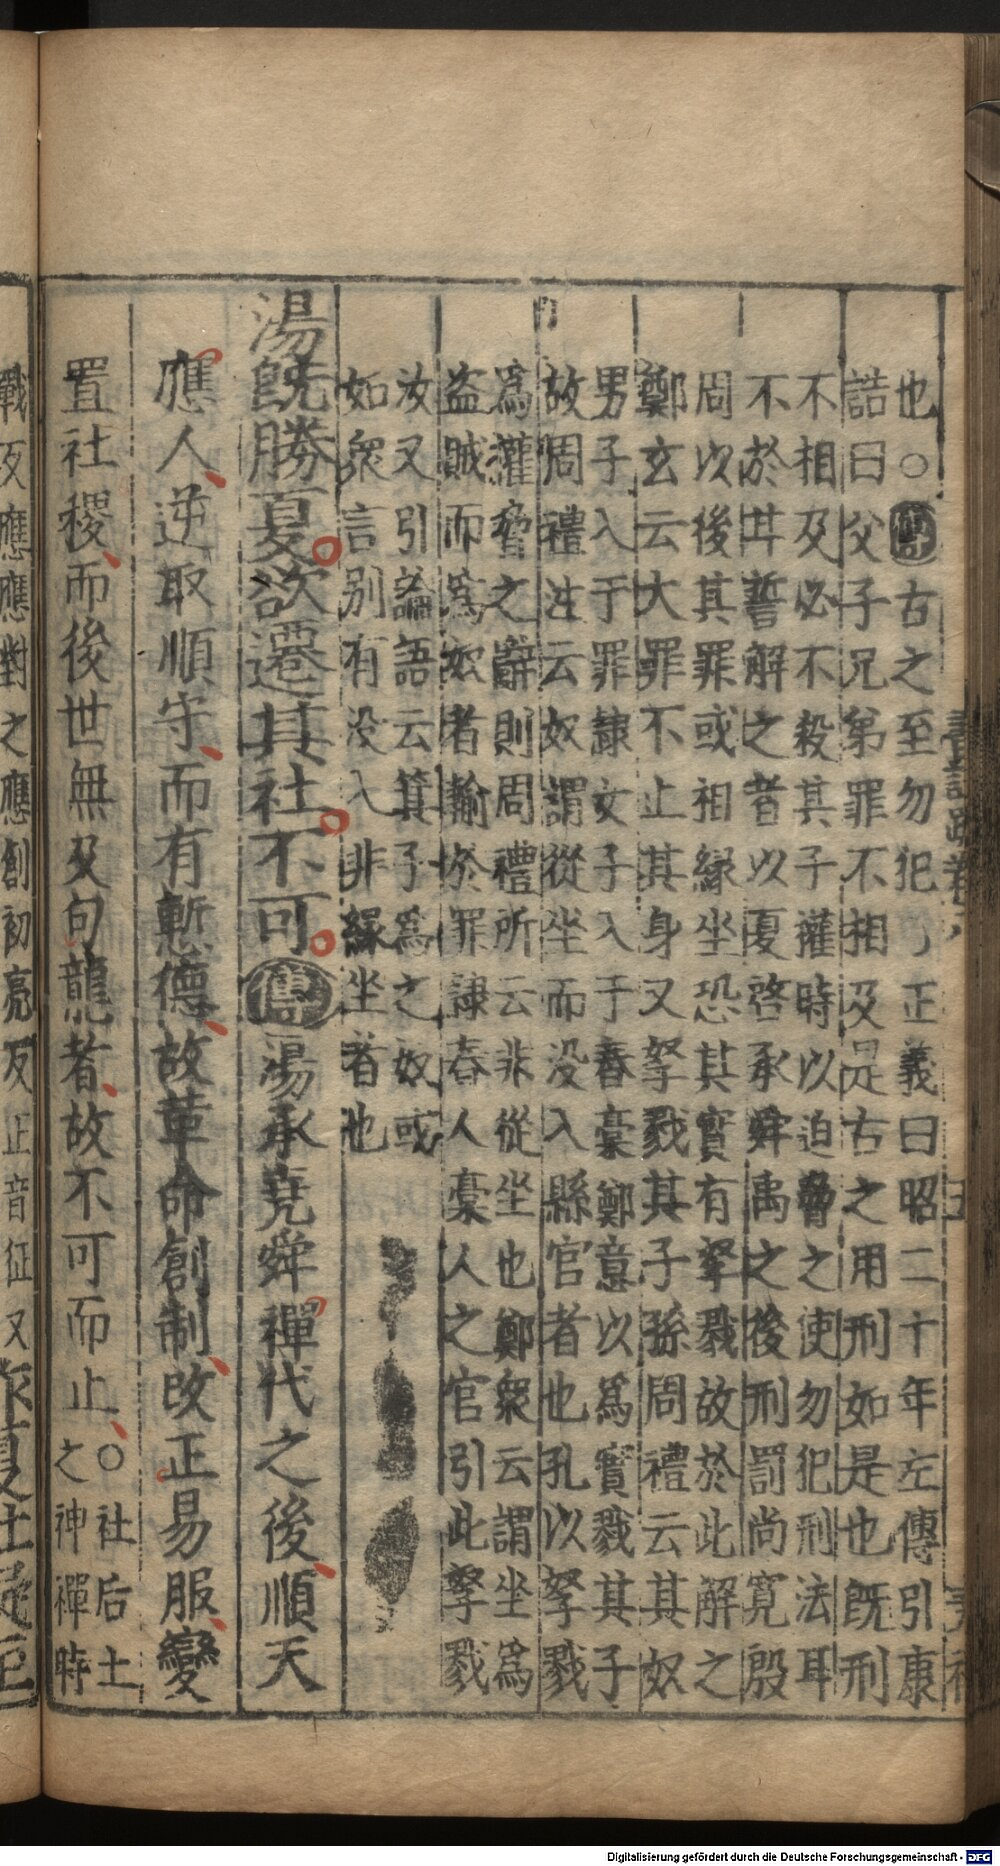 也○傳古之至勿犯 正義曰昭二十年左傳引康
誥曰父子兄弟罪不相及是古之用刑如是也既刑
不相及必不殺其子權時以迫脅之使勿犯刑法耳
不於甘誓解之者以夏啓承舜禹之後刑罰尚寬殷
周以後其罪或相緣坐恐其實有孥戮故於此解之
鄭玄云大罪不止其身又孥戮其子孫周禮云其奴
男子入于罪隸女子入于舂槀鄭意以爲實戮其子
故周禮注云奴謂從坐而没入縣官者也孔以孥戮
爲權脅之辭則周禮所云非從坐也鄭衆云謂坐爲
盗賊而爲奴者輸於罪隸舂人槀人之官引此孥戮
汝又引論語云箕子爲之奴或
如衆言別有没入非緣坐者也
湯既勝夏欲遷其社不可傳湯承堯舜禪代之後順天
應人逆取順守而有慙德故革命創制改正易服變
置社稷而後世無及句龍者故不可而止○社后土
之神禪時
戰反應應對之應創初亮反正音征又作夏社疑至
書註疏卷八
五
Digitalisierung gefördert durch die Deutsche Forschungsgemeinschaft - DFG